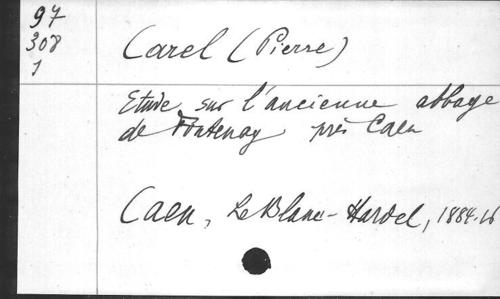 97
308
1
Carel (Pierre)
Etude sur l'ancienne abbaye
de Fontenay près Caen
Caen, Le Blanc-Hardel, 1884.